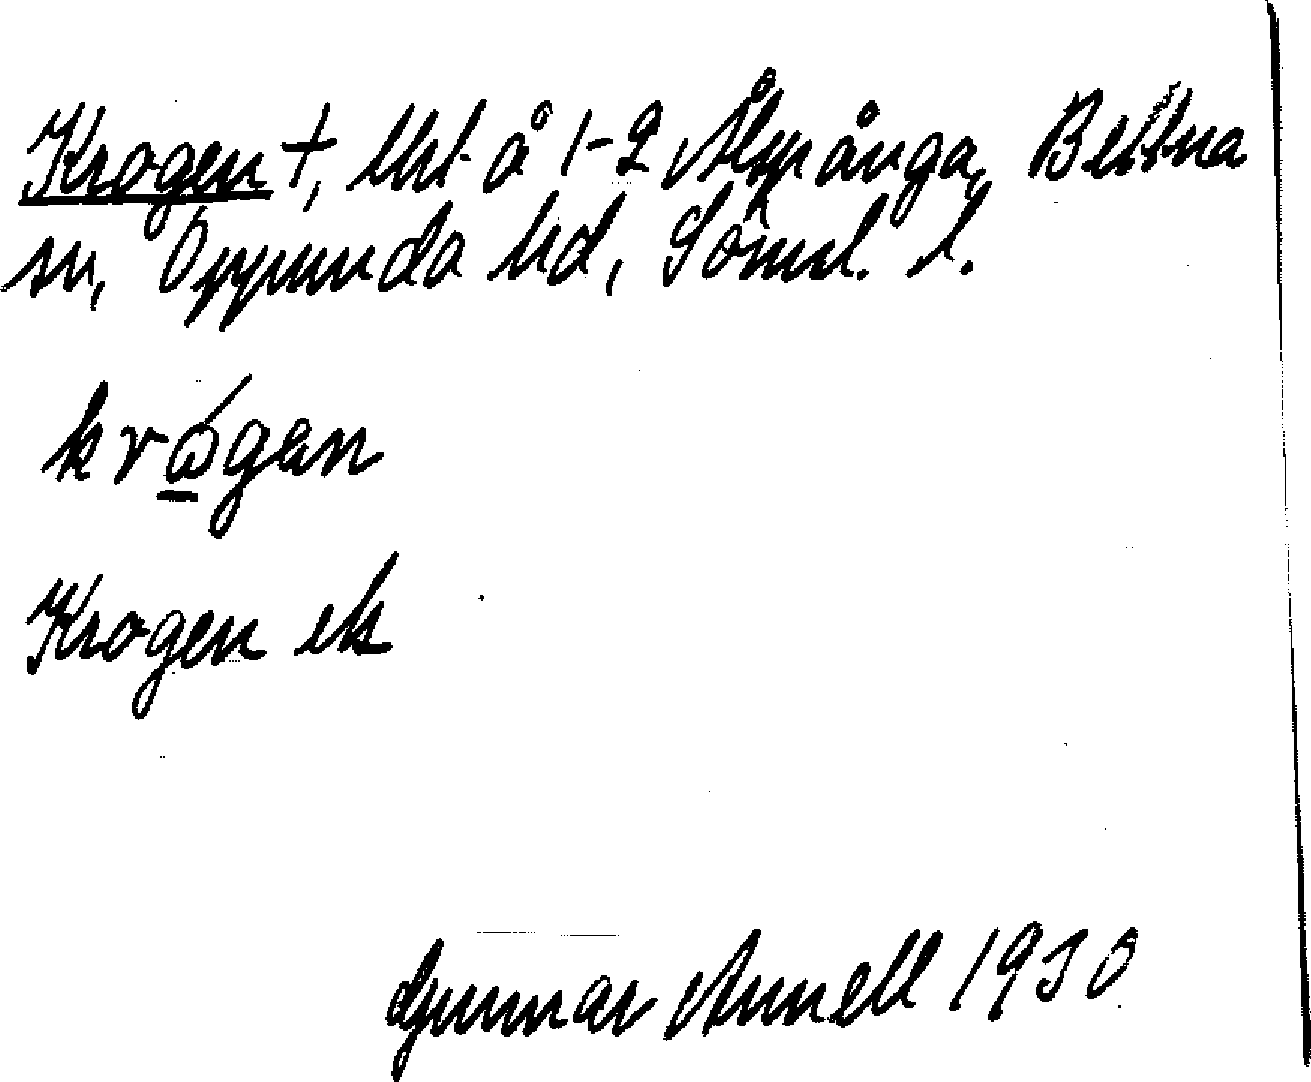 Krogen †, lht å 1-2 Ålspånga, Bettna
sn, Oppunda hd, Söml. l.
krógan
Krogen ek
Gunnar Annell 1930